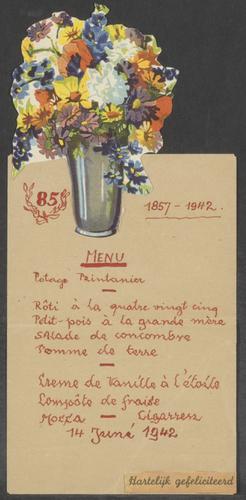 85
1857 - 1942.
MENU
Potage Printanier
Rôti à la quatre vingt cinq
Petit-pois à la grande mère
Salade de concombre
Pomme de terre
Creme de Vanille à l'étoile
Compôte de fraise
Mozza — Cigarren
14 Juné 1942
Hartelijk gefeliciteerd